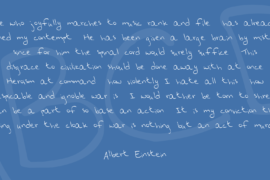 e who joyfully marches to music rank and file has alrea
ned my contempt He has been given a large brain by mist
since for him the spinal cord would surely suffice This
disgrace to civilization should be done away with at once
Heroism at command how violently I hate all this how
picable and ignoble war is I would rather be torn to shre
an be a part of so base an action It is my conviction th
ing under the cloak of war is nothing but an act of murd
Albert Einsten